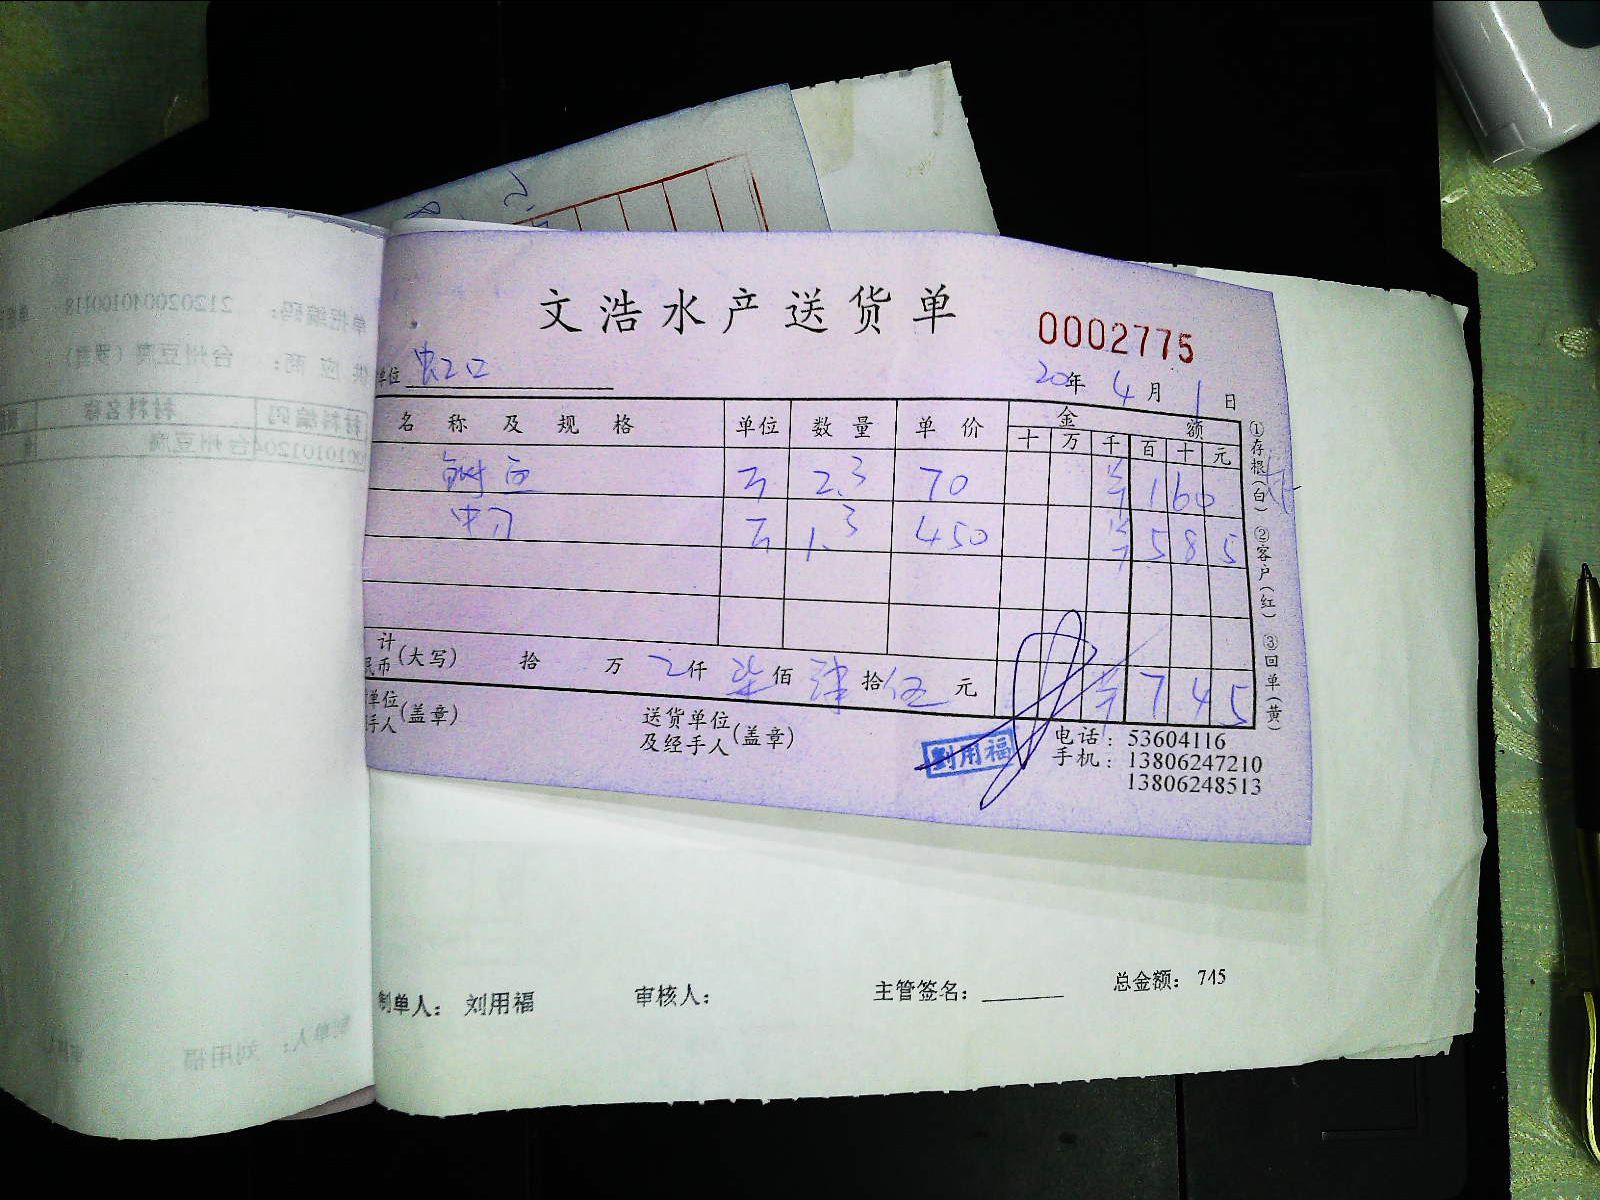 文浩水产送货单
0002775
单位 虹口
20年 4月 1日
名称及规格 单位 数量 单价 金额
十 万 千 百 十 元
2.3 70 160
1.3 450 585
计
民币(大写) 拾 万 仟 柒佰 肆拾伍元 745
单位
手人(盖章)
送货单位
及经手人(盖章)
刘用福
电话：53604116
手机：13806247210
13806248513
①存根(白) ②客户(红) ③回单(黄)
制单人： 刘用福 审核人： 主管签名： 总金额： 745
单据编码： 212020040100118
供应商： 台州豆腐
材料编码 材料名称
台州豆腐
制单人： 刘用福